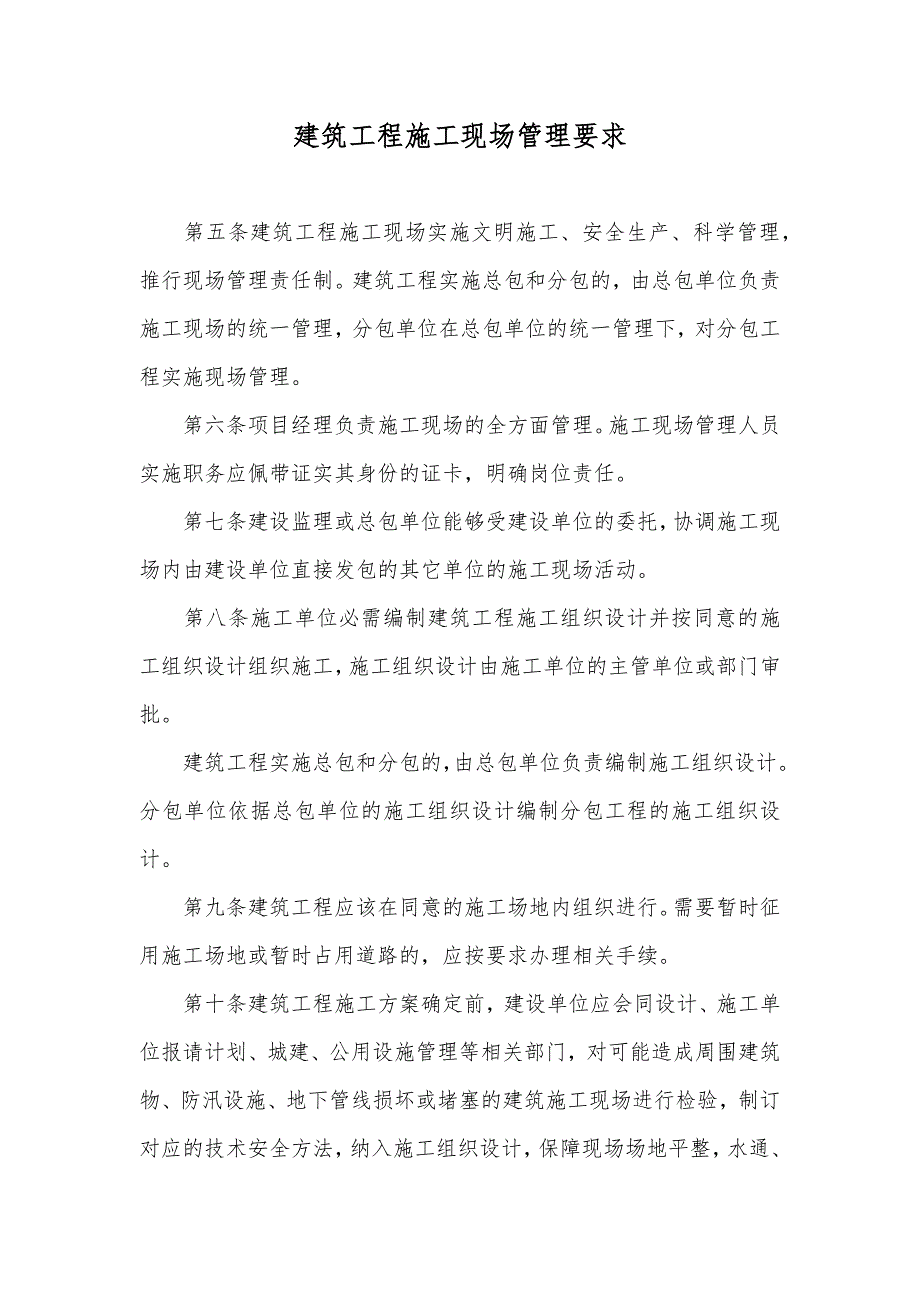 建筑工程施工现场管理要求
第五条建筑工程施工现场实施文明施工、安全生产、科学管理，
推行现场管理责任制。建筑工程实施总包和分包的，由总包单位负责
施工现场的统一管理，分包单位在总包单位的统一管理下，对分包工
程实施现场管理。
第六条项目经理负责施工现场的全方面管理。施工现场管理人员
实施职务应佩带证实其身份的证卡，明确岗位责任。
第七条建设监理或总包单位能够受建设单位的委托，协调施工现
场内由建设单位直接发包的其它单位的施工现场活动。
第八条施工单位必需编制建筑工程施工组织设计并按同意的施
工组织设计组织施工，施工组织设计由施工单位的主管单位或部门审
批。
建筑工程实施总包和分包的，由总包单位负责编制施工组织设计。
分包单位依据总包单位的施工组织设计编制分包工程的施工组织设
计。
第九条建筑工程应该在同意的施工场地内组织进行。需要暂时征
用施工场地或暂时占用道路的，应按要求办理相关手续。
第十条建筑工程施工方案确定前，建设单位应会同设计、施工单
位报请计划、城建、公用设施管理等相关部门，对可能造成周围建筑
物、防汛设施、地下管线损坏或堵塞的建筑施工现场进行检验，制订
对应的技术安全方法，纳入施工组织设计，保障现场场地平整，水通、